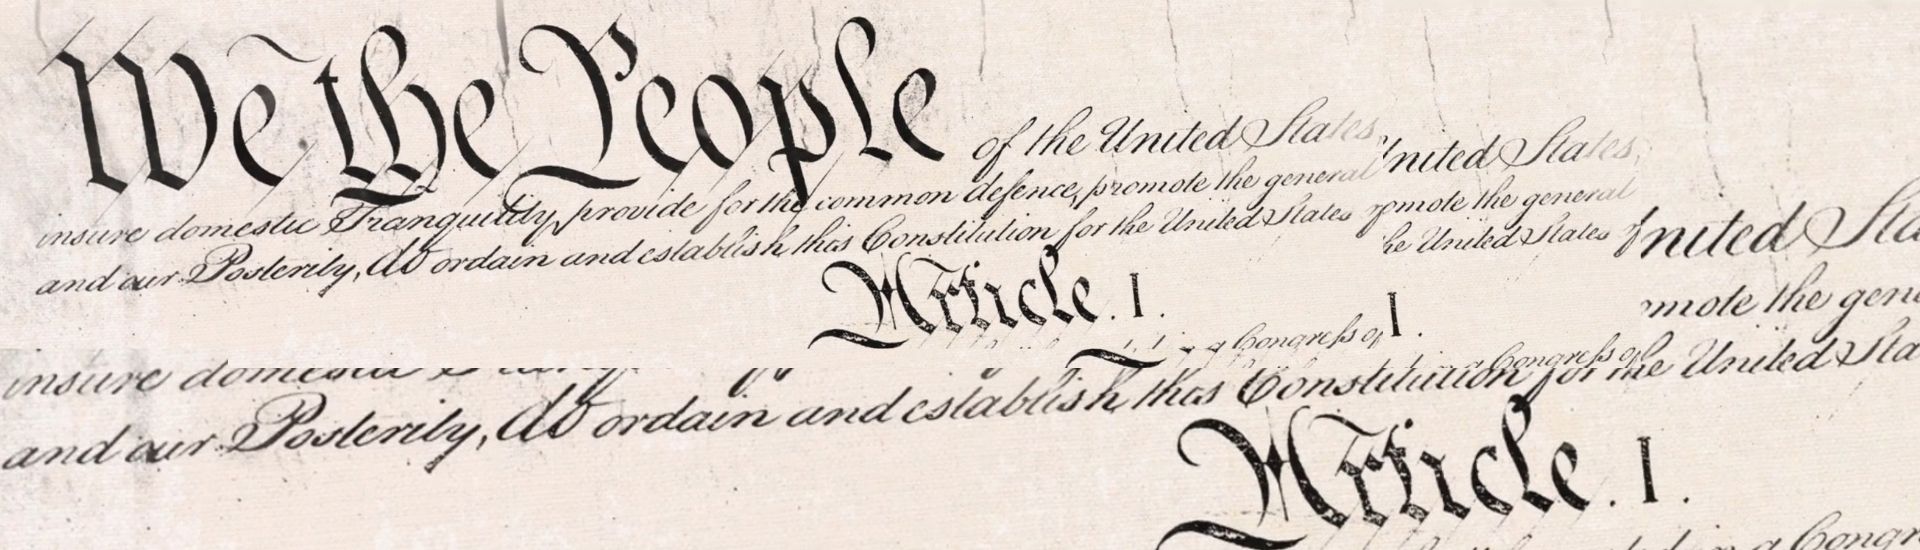 We the People of the United States,
nited States,
insure domestic Tranquility, provide for the common defence, promote the general
mote the general
and our Posterity, do ordain and establish this Constitution for the United States
he United States
nited Sta
mote the gene
Article. I.
I.
a Congress of
insure domestic
a Congress of
and our Posterity, do ordain and establish this Constitution for the United Sta
Article. I.
a Congr